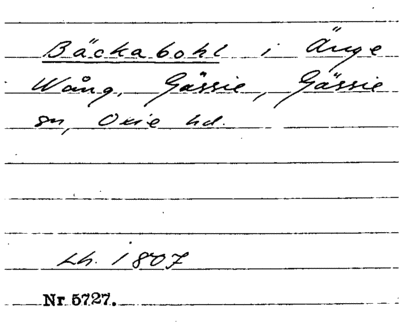 Bäckabohl i Änge
Wång, Gässie, Gässie
sn, Oxie hd.
Lh. 1807
Nr 5727.